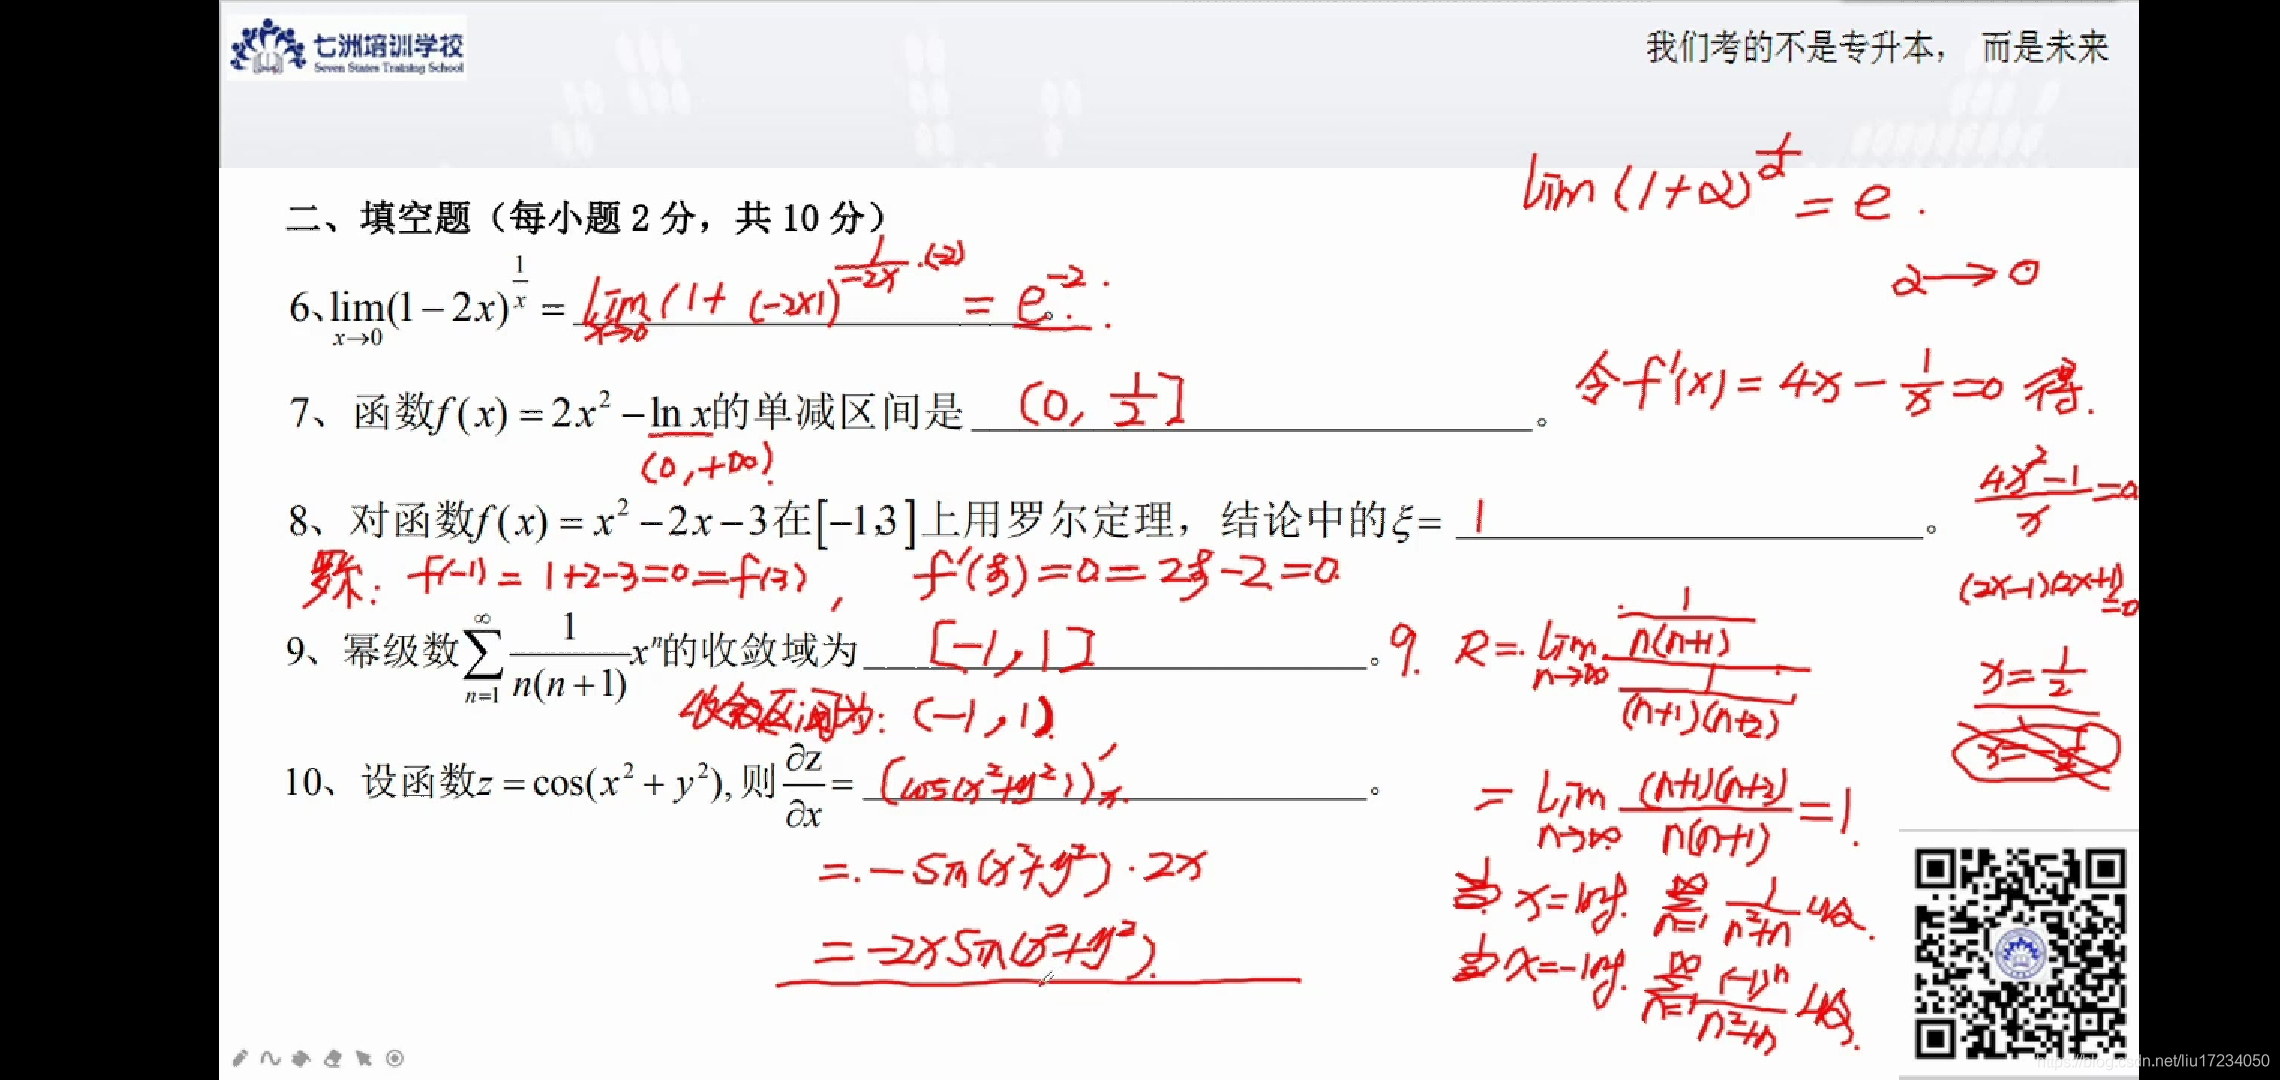 七洲培训学校
Seven States Training School
我们考的不是专升本， 而是未来
二、填空题（每小题2分，共10分）
lim(1+α)^(1/α) = e .
α→0
6、lim_{x→0}(1−2x)^(1/x) = lim_{x→0}(1+(-2x))^(1/(-2x)·(-2)) = e^(-2) 。
7、函数f(x)=2x²−ln x的单减区间是 (0, 1/2] 。
(0,+∞)
令f'(x)=4x−1/x=0 得.
(4x²−1)/x=0
(2x−1)(2x+1)=0
x=1/2
8、对函数f(x)=x²−2x−3在[−1,3]上用罗尔定理，结论中的ξ= 1 。
罗尔: f(-1)=1+2-3=0=f(3), f'(ξ)=0=2ξ-2=0.
9、幂级数∑_{n=1}^{∞} 1/(n(n+1)) xⁿ的收敛域为 [-1,1] 。
收敛区间为: (-1,1).
9. R= lim_{n→∞} (1/(n(n+1)))/(1/((n+1)(n+2)))
= lim_{n→∞} (n+1)(n+2)/(n(n+1)) =1.
当x=1时. ∑_{n=1}^{∞} 1/(n²+n) 收敛.
当x=-1时. ∑_{n=1}^{∞} (-1)ⁿ/(n²+n) 收敛.
10、设函数z=cos(x²+y²),则∂z/∂x= (cos(x²+y²))'ₓ 。
= -sin(x²+y²)·2x
= -2x sin(x²+y²).
https://blog.csdn.net/liu17234050